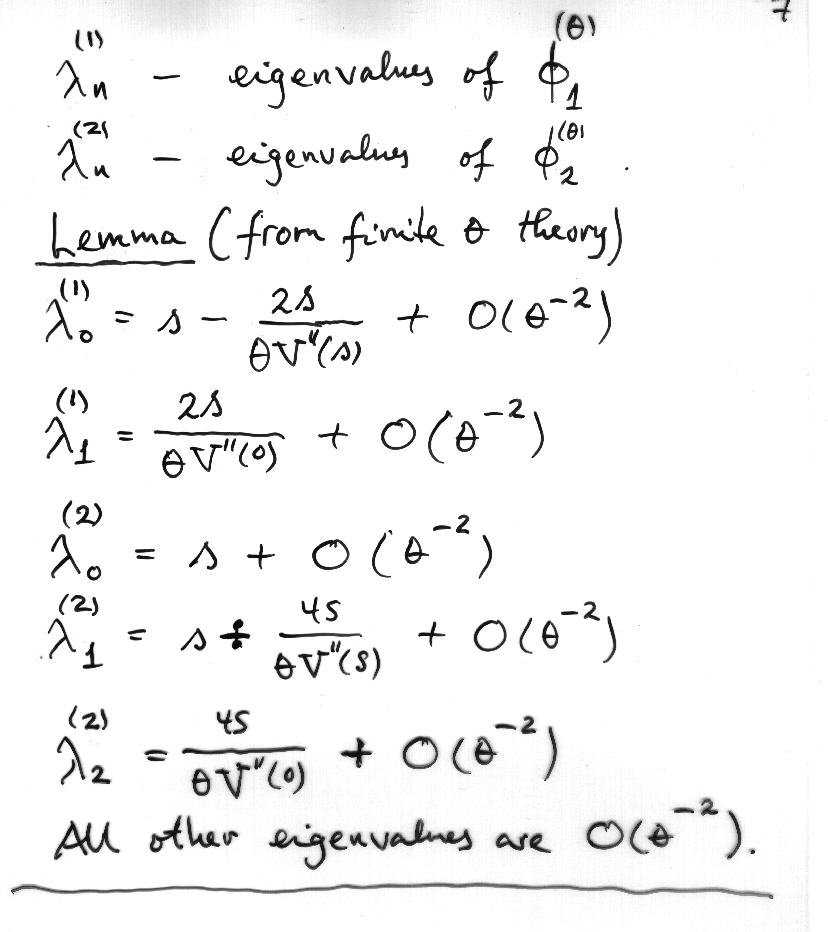 7
λₙ⁽¹⁾ – eigenvalues of ϕ₁^(θ)
λₙ⁽²⁾ – eigenvalues of ϕ₂^(θ).
Lemma (from finite θ theory)
λ₀⁽¹⁾ = s – 2s/(θV″(s)) + O(θ⁻²)
λ₁⁽¹⁾ = 2s/(θV″(0)) + O(θ⁻²)
λ₀⁽²⁾ = s + O(θ⁻²)
λ₁⁽²⁾ = s ∸ 4s/(θV″(s)) + O(θ⁻²)
λ₂⁽²⁾ = 4s/(θV″(0)) + O(θ⁻²)
All other eigenvalues are O(θ⁻²).